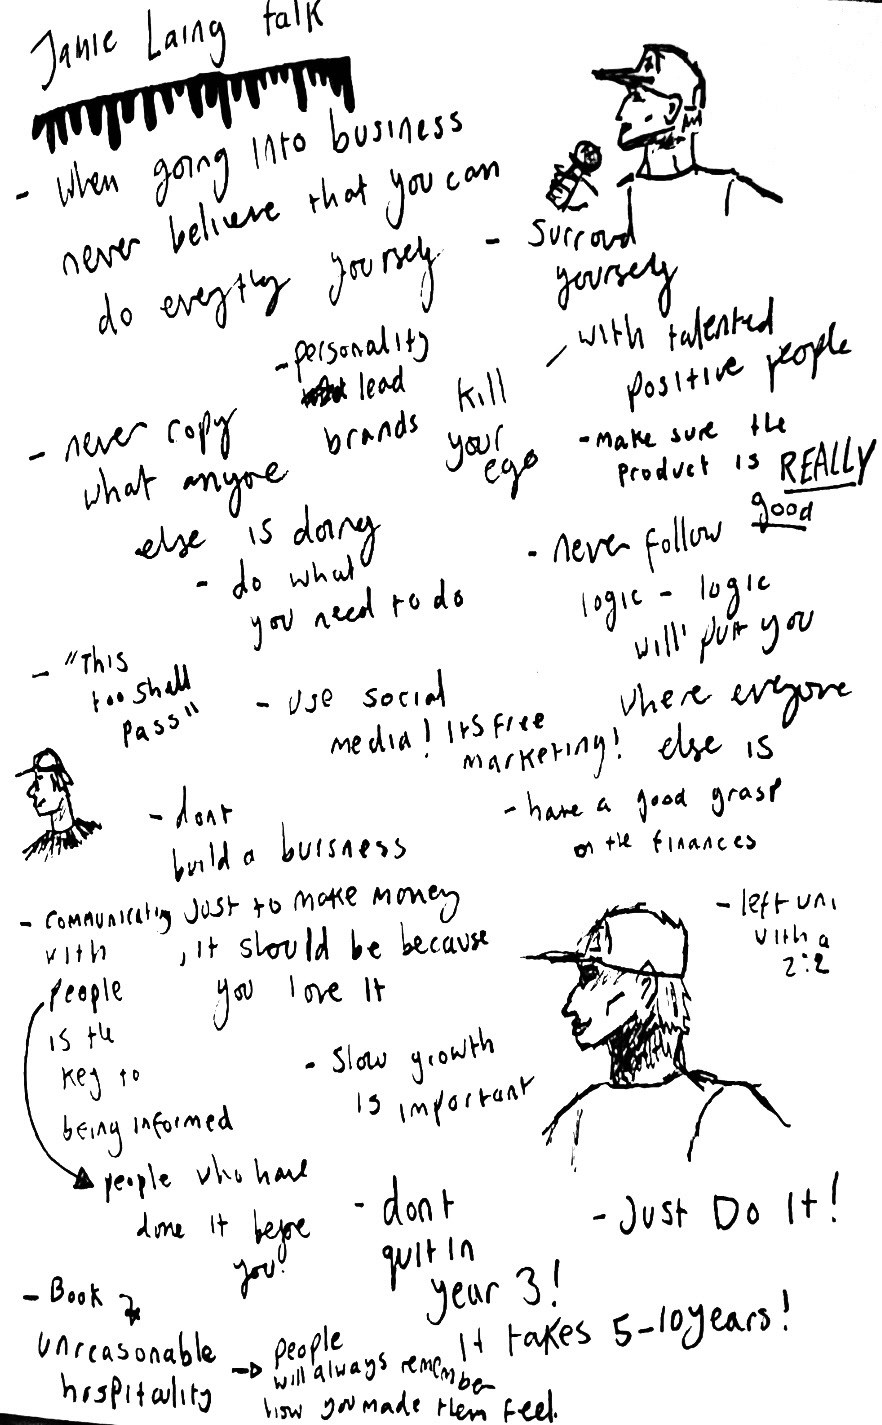 Jamie Laing talk
- When going into business
never believe that you can
do everything yourself
- Surround
yourself
with talented
positive people
- personality
lead
brands
kill
your
ego
- never copy
what anyone
else is doing
- do what
you need to do
- make sure the
product is REALLY
good
- never follow
logic - logic
will put you
where everyone
else is
- "This
too shall
pass"
- use social
media! Its free
marketing!
- have a good grasp
on the finances
- dont
build a buisness
just to make money
, it should be because
you love it
- communicating
with
people
is the
key to
being informed
people who have
done it before
you!
- left uni
with a
2:2
- Slow growth
is important
- dont
quit in
year 3!
It takes 5-10 years!
- Just Do It!
- Book
unreasonable
hospitality
people
will always remember
how you made them feel.